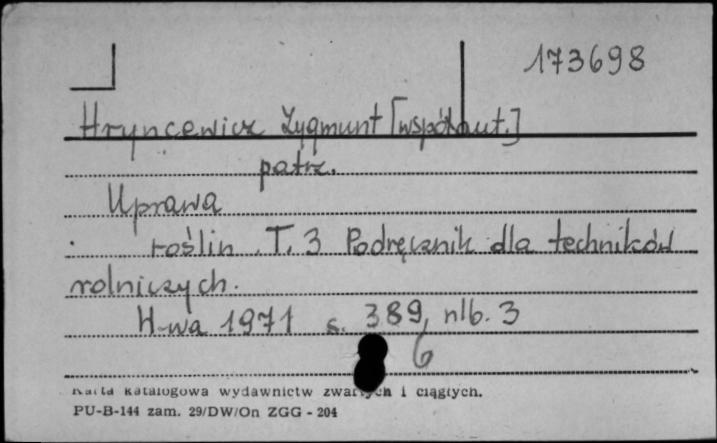 173698
Hryncewicz Zygmunt [współaut.]
patrz.
Uprawa
roślin T. 3 Podręcznik dla techników
rolniczych.
W-wa 1971 s. 389, nlb. 3
6
Karta katalogowa wydawnictw zwartych i ciągłych.
PU-B-144 zam. 29/DW/On ZGG - 204